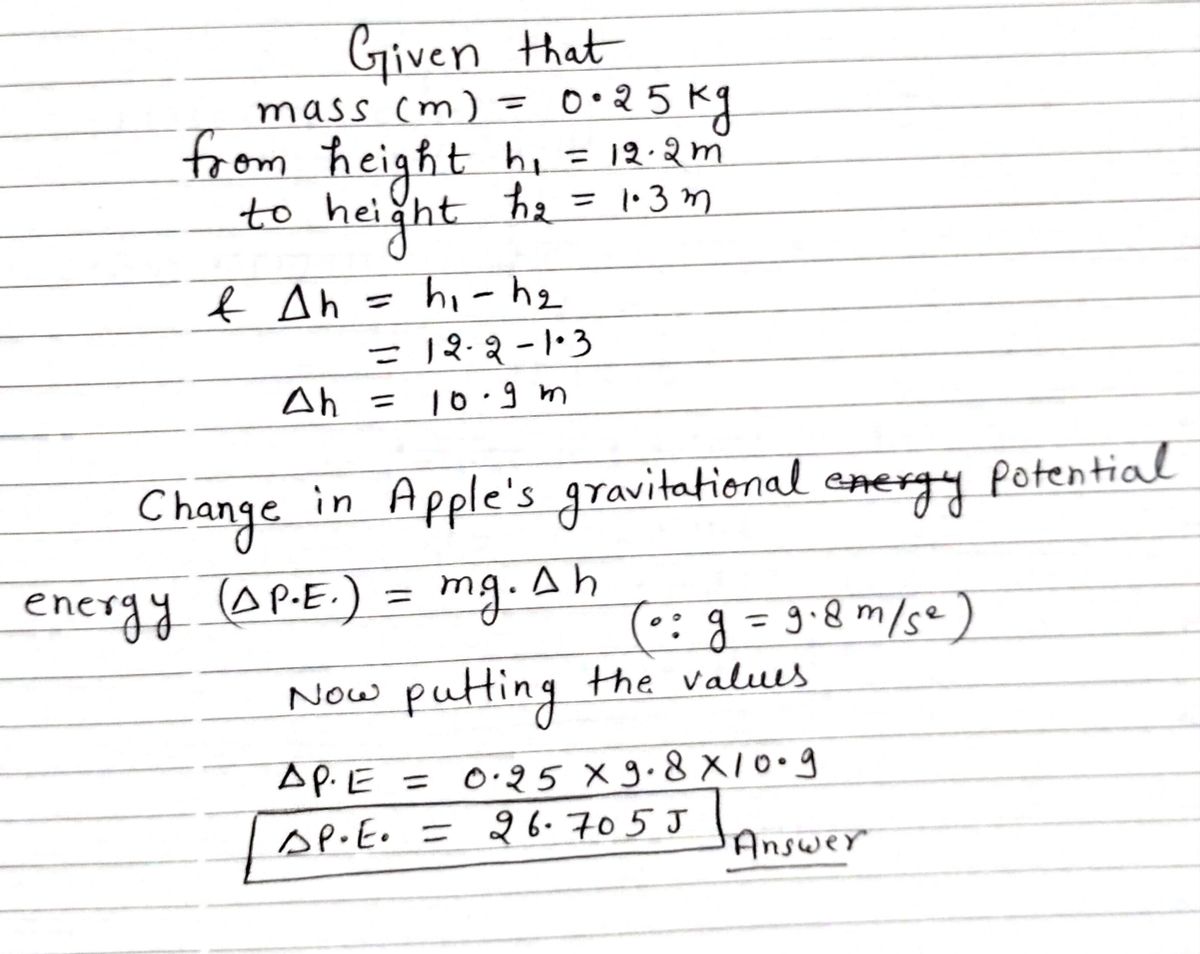 Given that
mass (m) = 0.25 Kg
from height h₁ = 12.2m
to height h₂ = 1.3 m
& Δh = h₁ - h₂
= 12.2 - 1.3
Δh = 10.9 m
Change in Apple's gravitational energy potential
energy (ΔP.E.) = mg. Δh
(∵ g = 9.8 m/s²)
Now putting the values
ΔP.E = 0.25 × 9.8 × 10.9
ΔP.E. = 26.705 J Answer